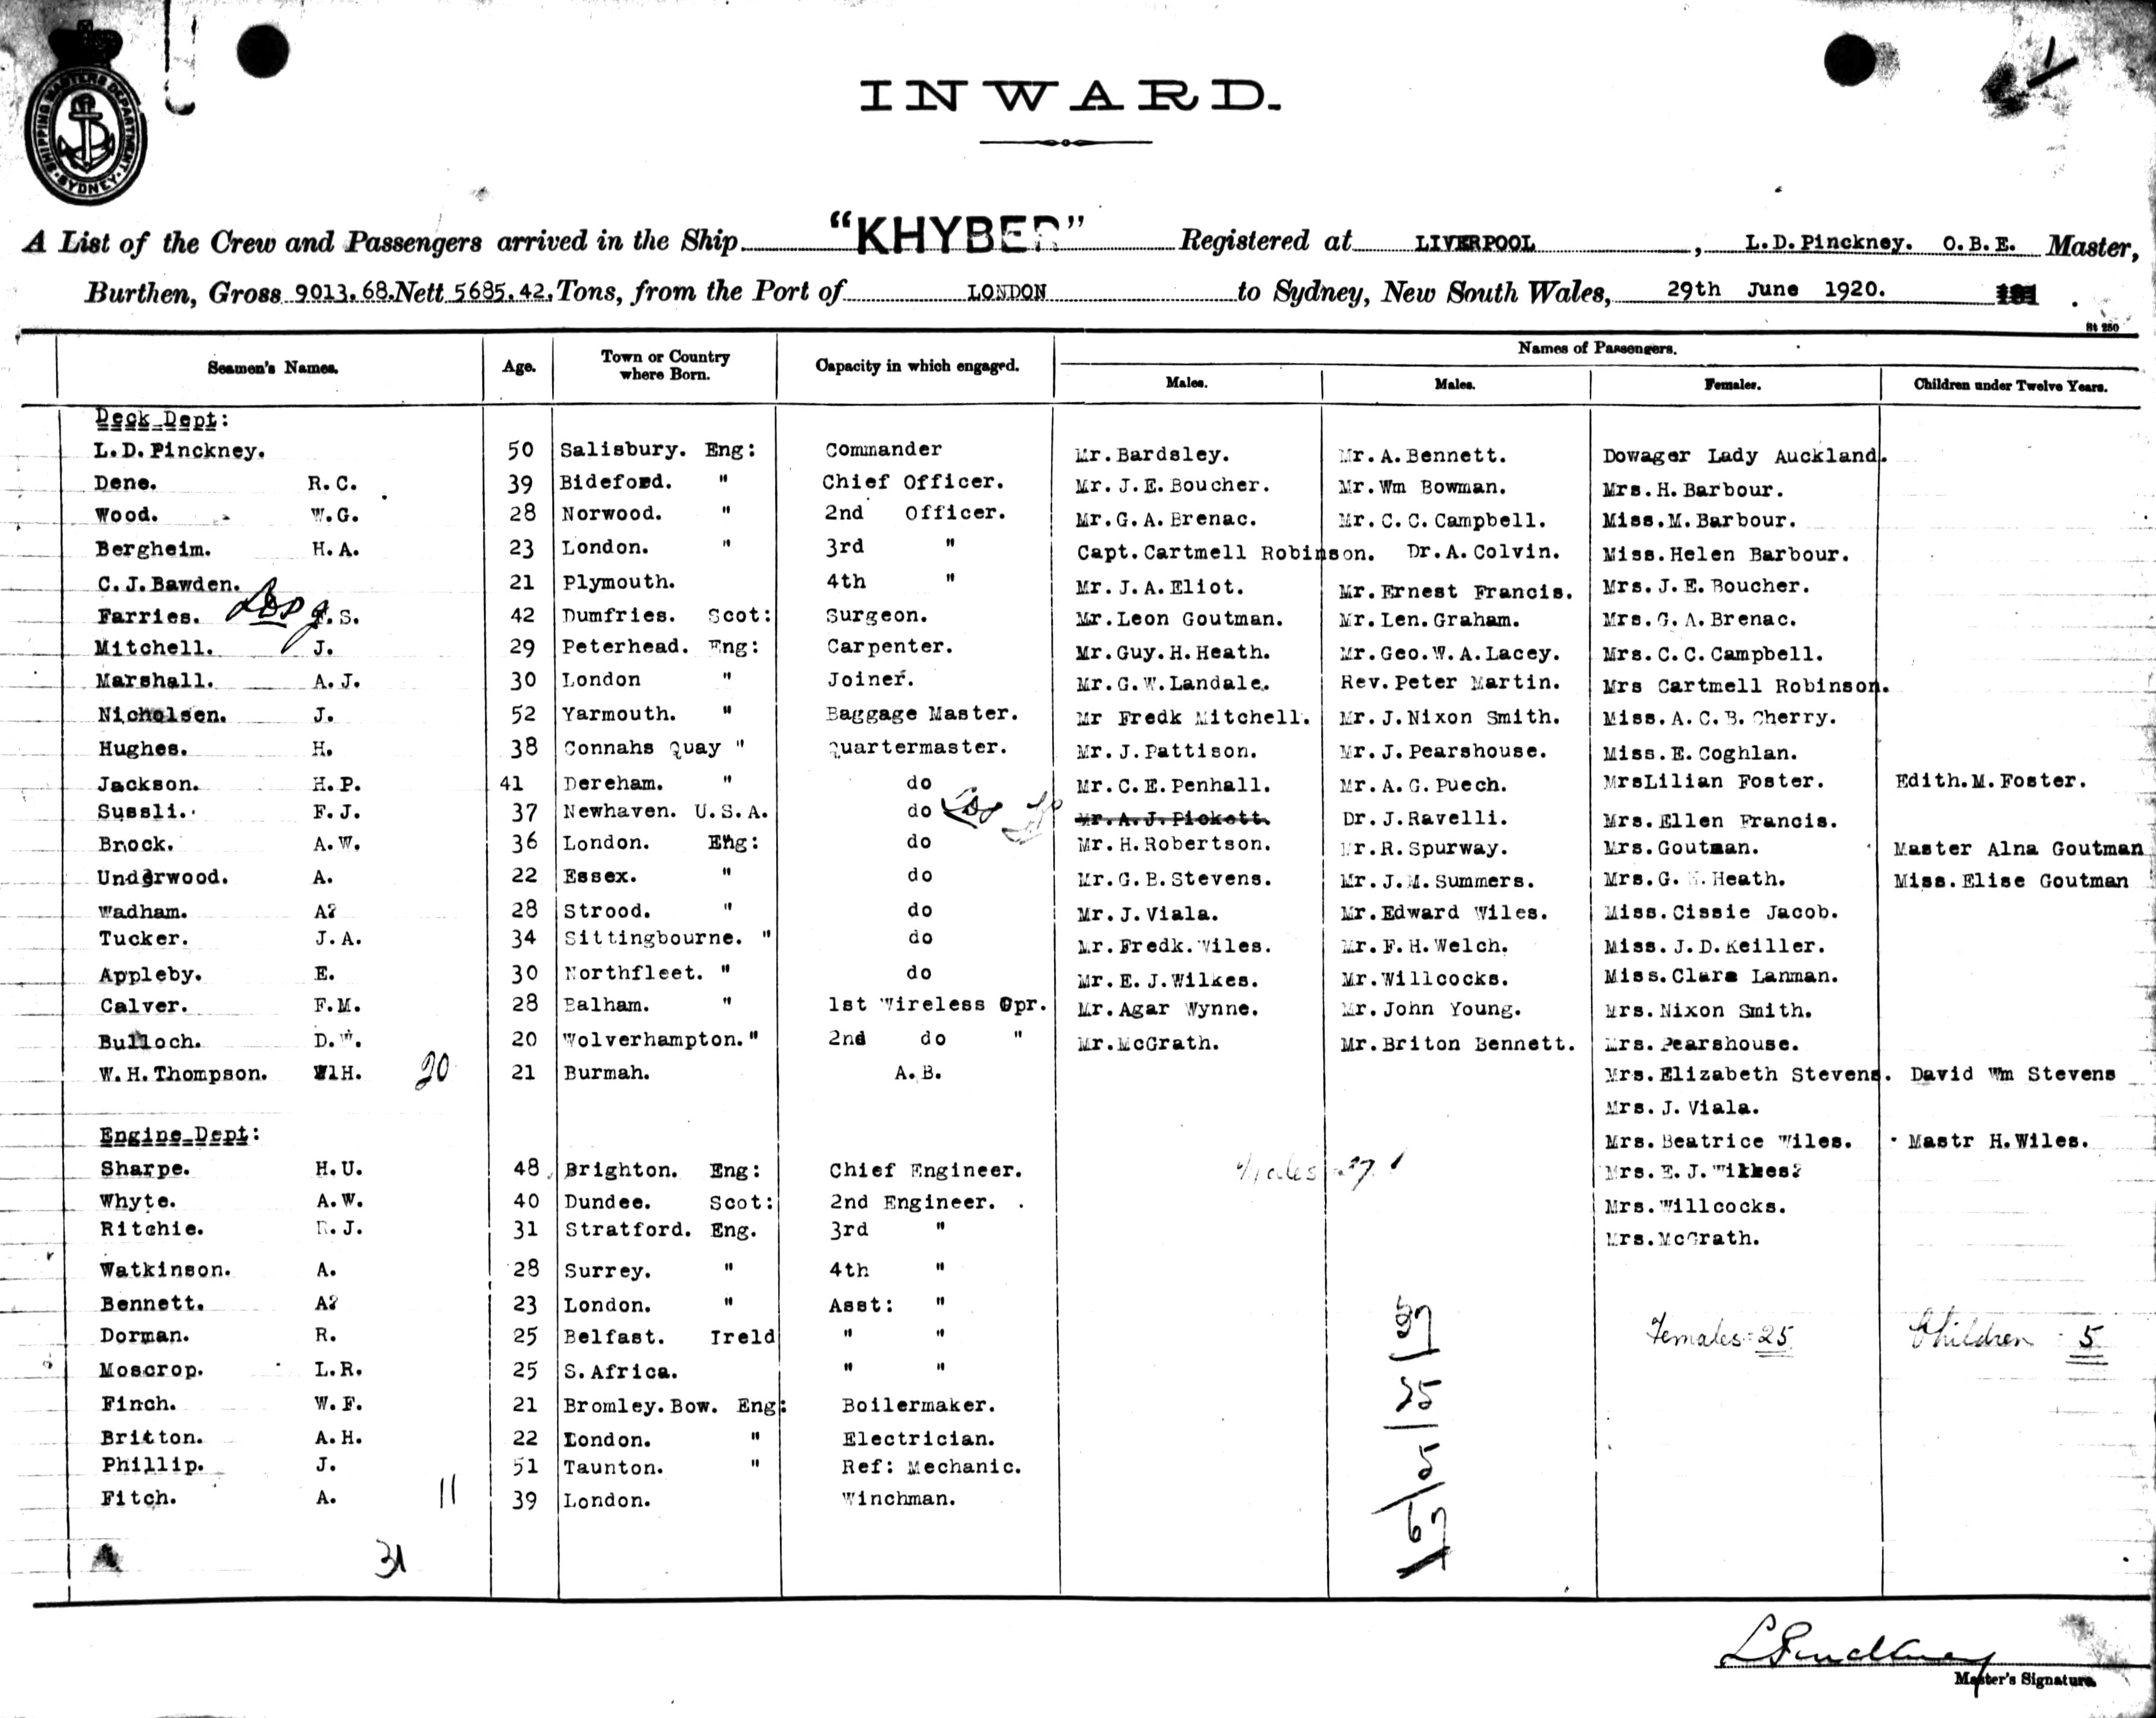 SHIPPING MASTERS DEPARTMENT. SYDNEY.
INWARD.
A List of the Crew and Passengers arrived in the Ship "KHYBER" Registered at LIVERPOOL, L.D.Pinckney. O.B.E. Master,
Burthen, Gross 9013.68.Nett 5685.42.Tons, from the Port of LONDON to Sydney, New South Wales, 29th June 1920. 191 .
St 250
Names of Passengers.
Seamen's Names. Age. Town or Country where Born. Capacity in which engaged. Males. Males. Females. Children under Twelve Years.
Deck Dept:
L.D.Pinckney. 50 Salisbury. Eng: Commander Mr.Bardsley. Mr.A.Bennett. Dowager Lady Auckland.
Dene. R.C. 39 Bideford. " Chief Officer. Mr.J.E.Boucher. Mr.Wm Bowman. Mrs.H.Barbour.
Wood. W.G. 28 Norwood. " 2nd Officer. Mr.G.A.Brenac. Mr.C.C.Campbell. Miss.M.Barbour.
Bergheim. H.A. 23 London. " 3rd " Capt.Cartmell Robinson. Dr.A.Colvin. Miss.Helen Barbour.
C.J.Bawden. 21 Plymouth. 4th " Mr.J.A.Eliot. Mr.Ernest Francis. Mrs.J.E.Boucher.
Farries. F.S. 42 Dumfries. Scot: Surgeon. Mr.Leon Goutman. Mr.Len.Graham. Mrs.G.A.Brenac.
Mitchell. J. 29 Peterhead. Eng: Carpenter. Mr.Guy.H.Heath. Mr.Geo.W.A.Lacey. Mrs.C.C.Campbell.
Marshall. A.J. 30 London " Joiner. Mr.G.W.Landale. Rev.Peter Martin. Mrs Cartmell Robinson.
Nicholsen. J. 52 Yarmouth. " Baggage Master. Mr Fredk Mitchell. Mr.J.Nixon Smith. Miss.A.C.B.Cherry.
Hughes. H. 38 Connahs Quay " Quartermaster. Mr.J.Pattison. Mr.J.Pearshouse. Miss.E.Coghlan.
Jackson. H.P. 41 Dereham. " do Mr.C.E.Penhall. Mr.A.G.Puech. MrsLilian Foster. Edith.M.Foster.
Sussli. F.J. 37 Newhaven. U.S.A. do Mr.A.J.Pickett. Dr.J.Ravelli. Mrs.Ellen Francis.
Brock. A.W. 36 London. Eng: do Mr.H.Robertson. Mr.R.Spurway. Mrs.Goutman. Master Alna Goutman
Underwood. A. 22 Essex. " do Mr.G.B.Stevens. Mr.J.M.Summers. Mrs.G. H.Heath. Miss.Elise Goutman
Wadham. A? 28 Strood. " do Mr.J.Viala. Mr.Edward Wiles. Miss.Cissie Jacob.
Tucker. J.A. 34 Sittingbourne. " do Mr.Fredk.Wiles. Mr.F.H.Welch. Miss.J.D.Keiller.
Appleby. E. 30 Northfleet. " do Mr.E.J.Wilkes. Mr.Willcocks. Miss.Clara Lanman.
Calver. F.M. 28 Balham. " 1st Wireless Opr. Mr.Agar Wynne. Mr.John Young. Mrs.Nixon Smith.
Bulloch. D.W. 20 Wolverhampton." 2nd do " Mr.McGrath. Mr.Briton Bennett. Mrs.Pearshouse.
W.H.Thompson. W1H. 20 21 Burmah. A.B. Mrs.Elizabeth Stevens. David Wm Stevens
Mrs.J.Viala.
Engine Dept: Mrs.Beatrice Wiles. Mastr H.Wiles.
Sharpe. H.U. 48 Brighton. Eng: Chief Engineer. Males 37. Mrs.E.J.Wilkes?
Whyte. A.W. 40 Dundee. Scot: 2nd Engineer. Mrs.Willcocks.
Ritchie. R.J. 31 Stratford. Eng. 3rd " Mrs.McGrath.
Watkinson. A. 28 Surrey. " 4th "
Bennett. A? 23 London. " Asst: "
Dorman. R. 25 Belfast. Ireld " " Females=25 Children 5
Moscrop. L.R. 25 S.Africa. " "
Finch. W.F. 21 Bromley.Bow. Eng: Boilermaker.
Britton. A.H. 22 London. " Electrician.
Phillip. J. 51 Taunton. " Ref: Mechanic.
Fitch. A. 11 39 London. Winchman.
31
37
25
5
67
LPinckney
Master's Signature.